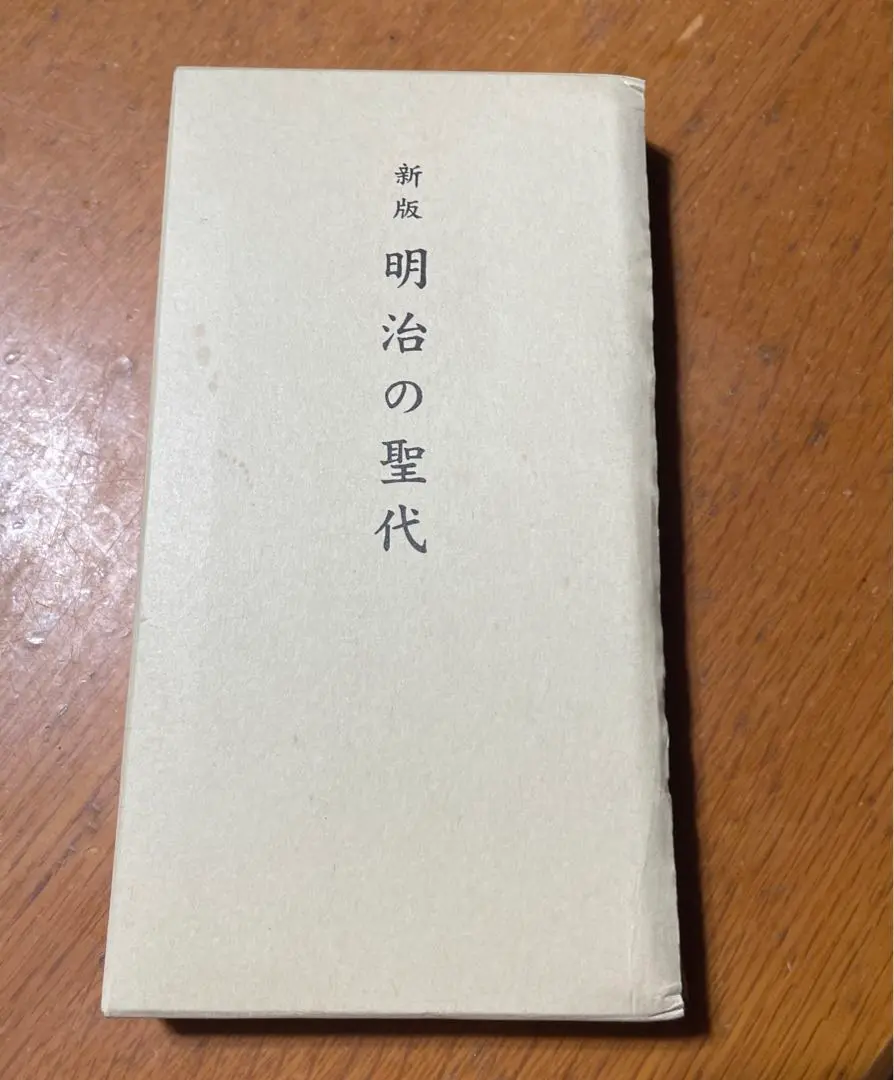 新版 明治の聖代